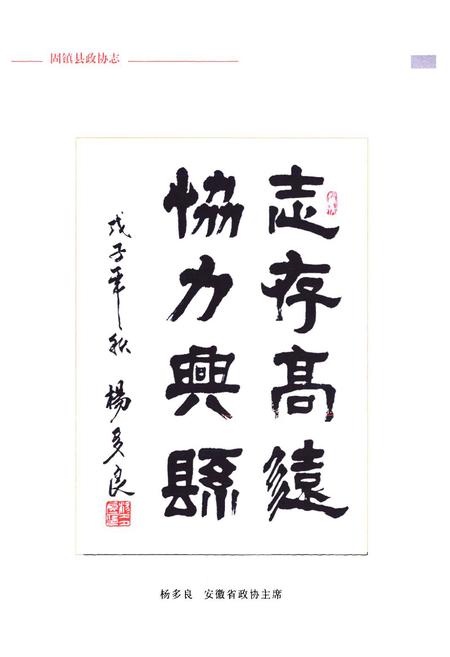 固镇县政协志
志存高遠
協力興縣
戊子年秋 楊多良
杨多良 安徽省政协主席